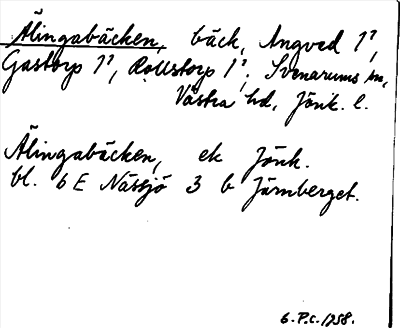 Älingabäcken, bäck, Angved 1?,
Gastorp 1?, Rollstorp 1?, Svenarums sn,
Västra hd, Jönk. l.
Älingabäcken, ek Jönk.
bl. 6 E Nässjö 3 b Järnberget.
6. P.C. 1258.